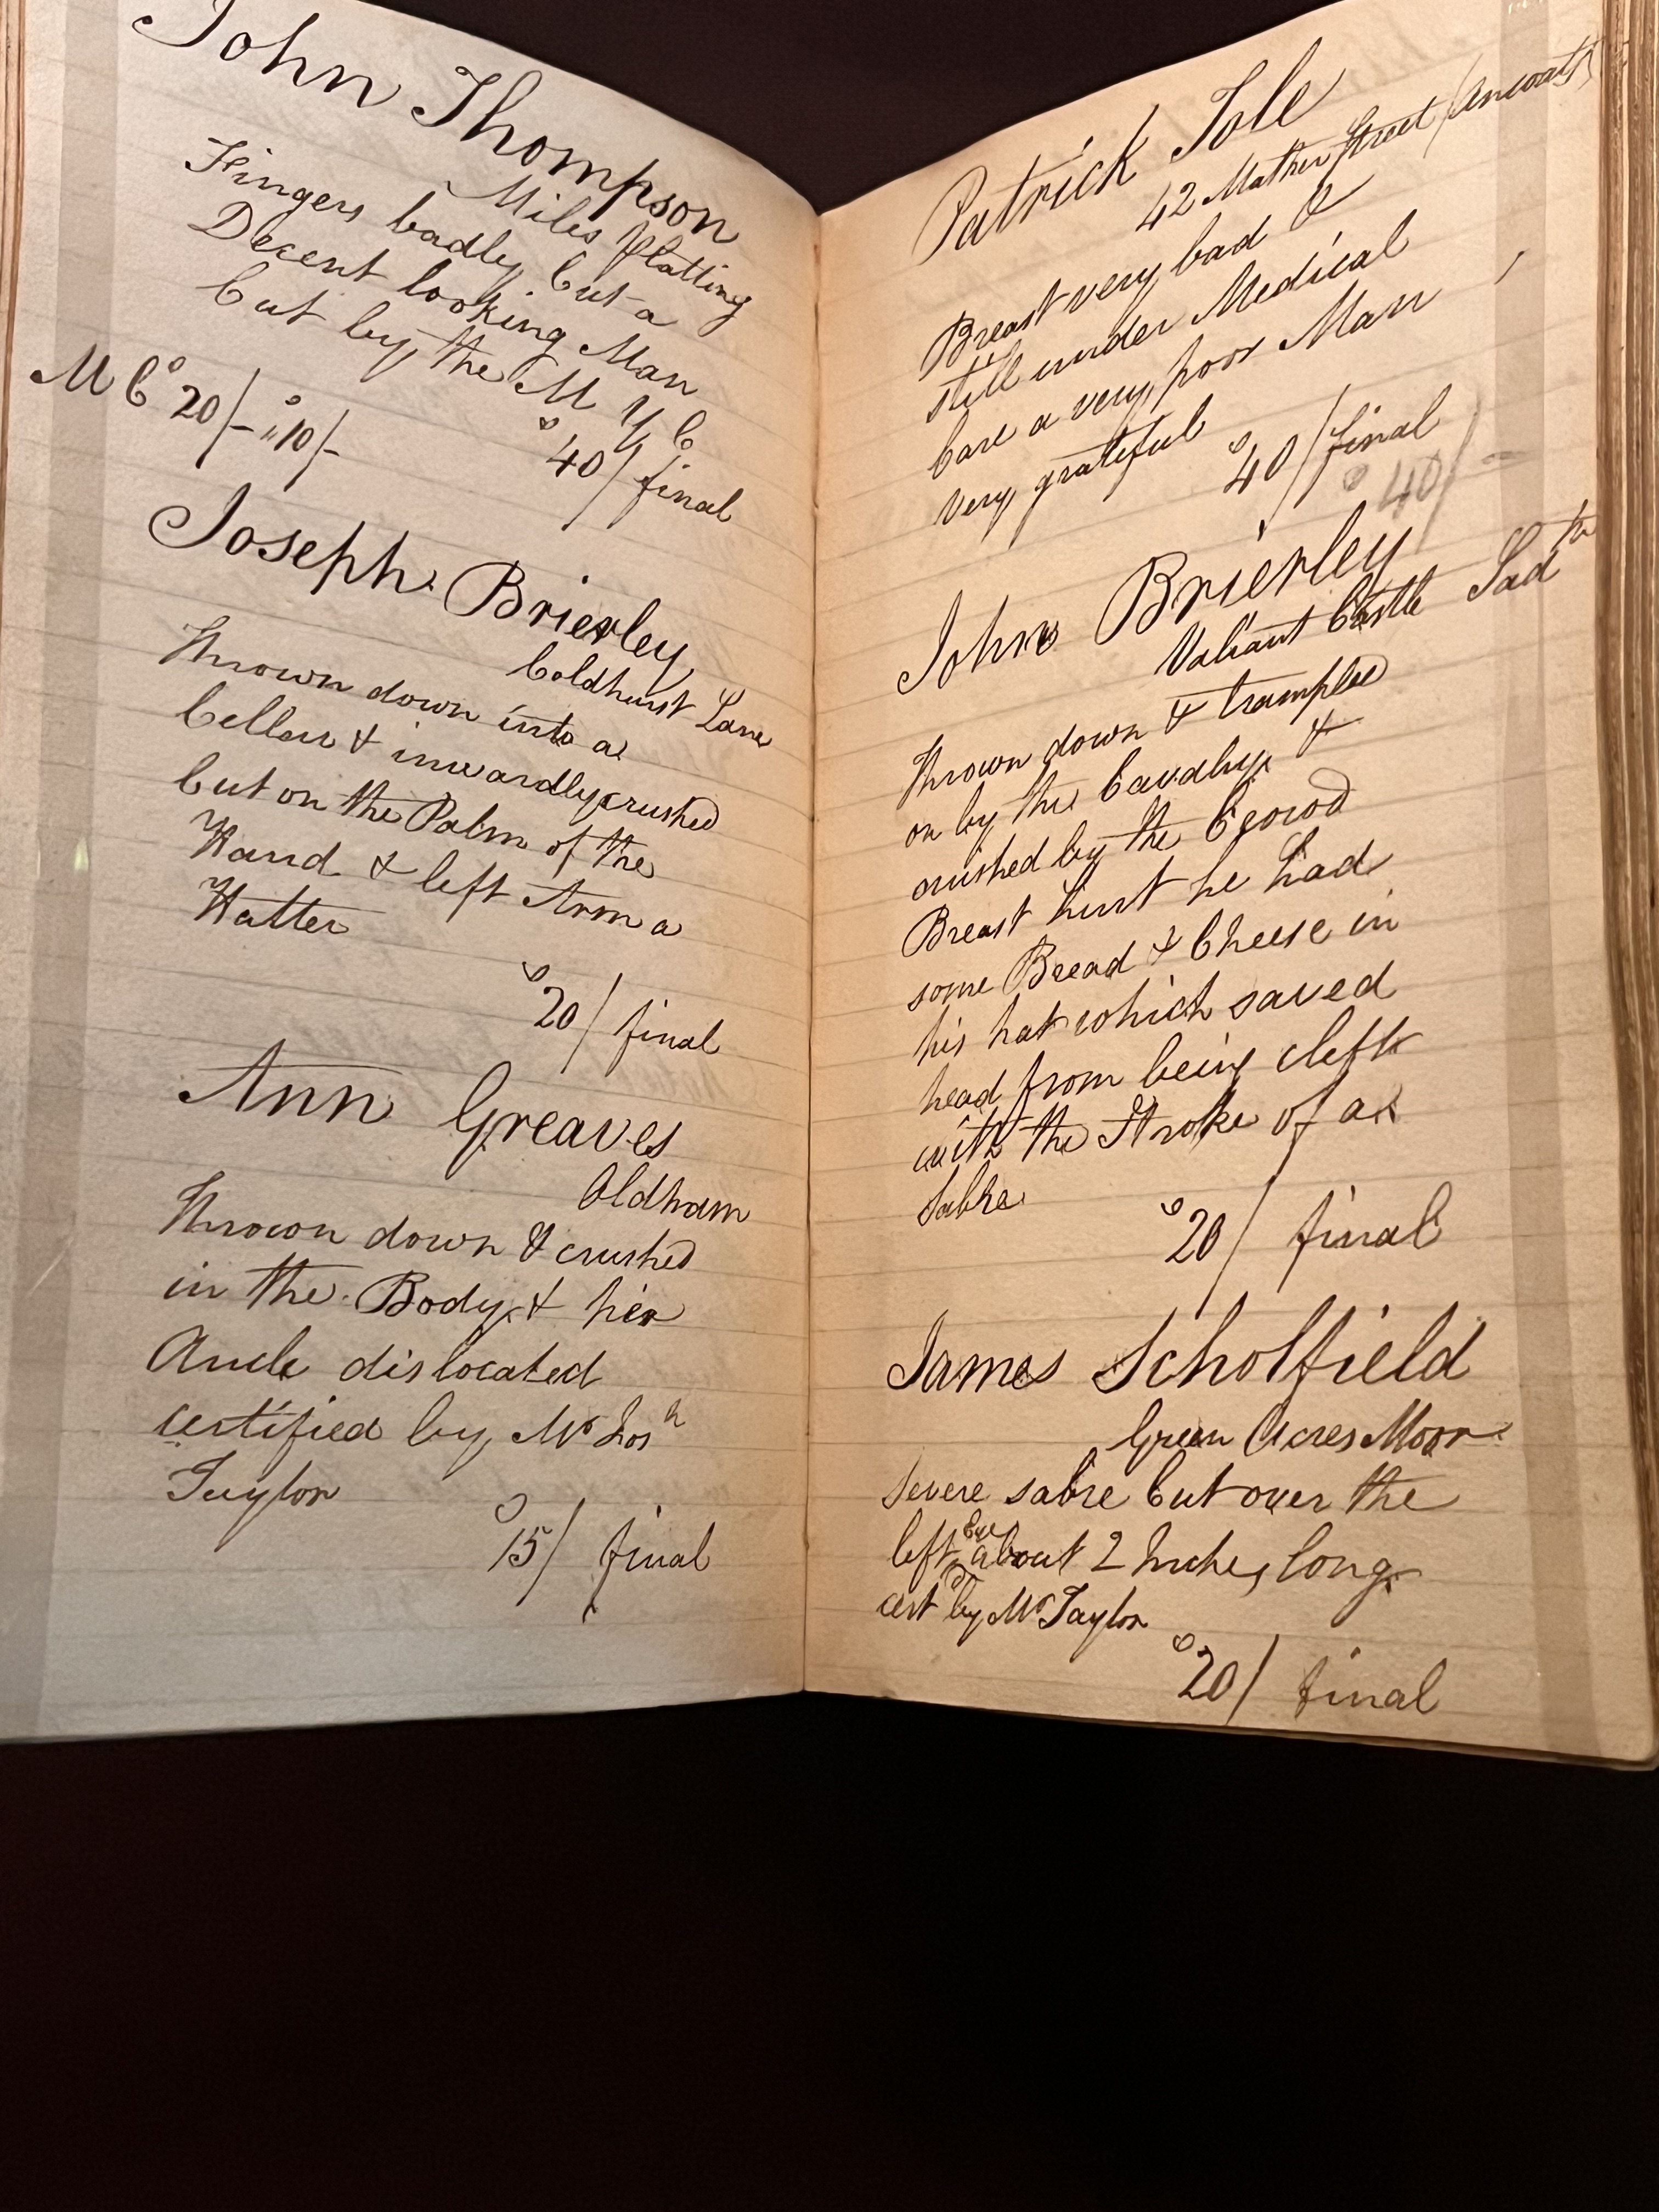 John Thompson
Miles Platting
Fingers badly Cut a
Decent looking Man
Cut by the M Y C
M Co 20/- " 10/-
40/ final
Joseph Brierley
Coldhurst Lane
Thrown down into a
Cellar & inwardly crushed
Cut on the Palm of the
Hand & left Arm a
Hatter
20/ final
Ann Greaves
Oldham
Thrown down & crushed
in the Body & her
Ancle dislocated
certified by Mr Josh
Taylor
15/ final
Patrick Tole
42 Mather Street (Ancoats)
Breast very bad &
still under Medical
Care a very poor Man
very grateful
40/ final
40/-
John Brierley
Valiant Castle Sadth
Thrown down & trampled
on by the Cavalry &
crushed by the Crowd
Breast hurt he had
some Bread & Cheese in
his hat which saved
head from being cleft
with the Stroke of a
Sabre
20/ final
James Scholfield
Green Acres Moor
severe sabre Cut over the
left Eye about 2 Inches long
certd by Mr Taylor
20/ final